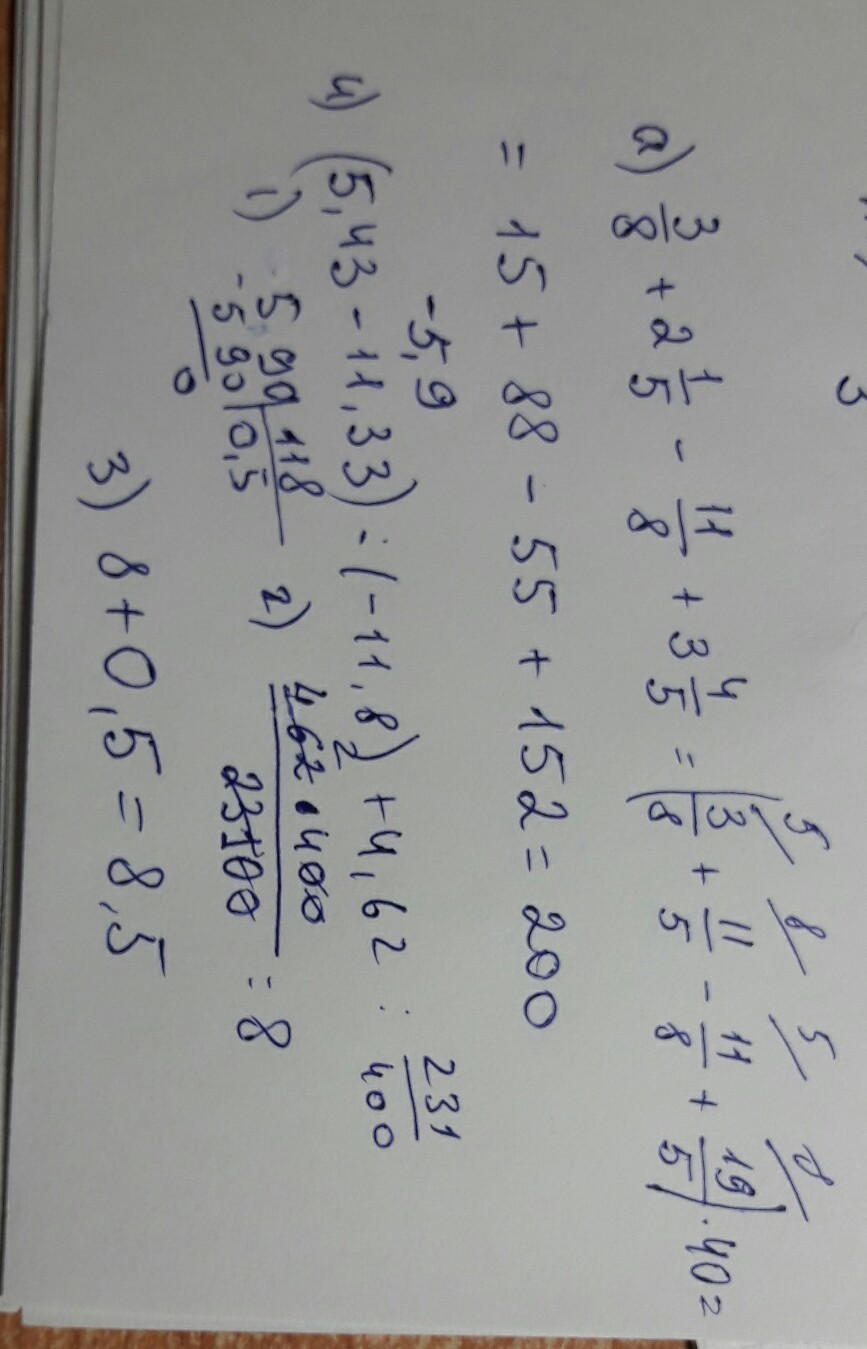 3
а) 3/8 + 2 1/5 - 11/8 + 3 4/5 = (3/8 + 11/5 - 11/8 + 19/5) · 40 =
5 8 5 8
= 15 + 88 - 55 + 152 = 200
-5,9
4) (5,43 - 11,33) : (-11,8) + 4,62 : 231/400
1) 5 90 | 118
- 5 90 | 0,5
0
2) 462 · 400 / 23100 = 8
2
3) 8 + 0,5 = 8,5